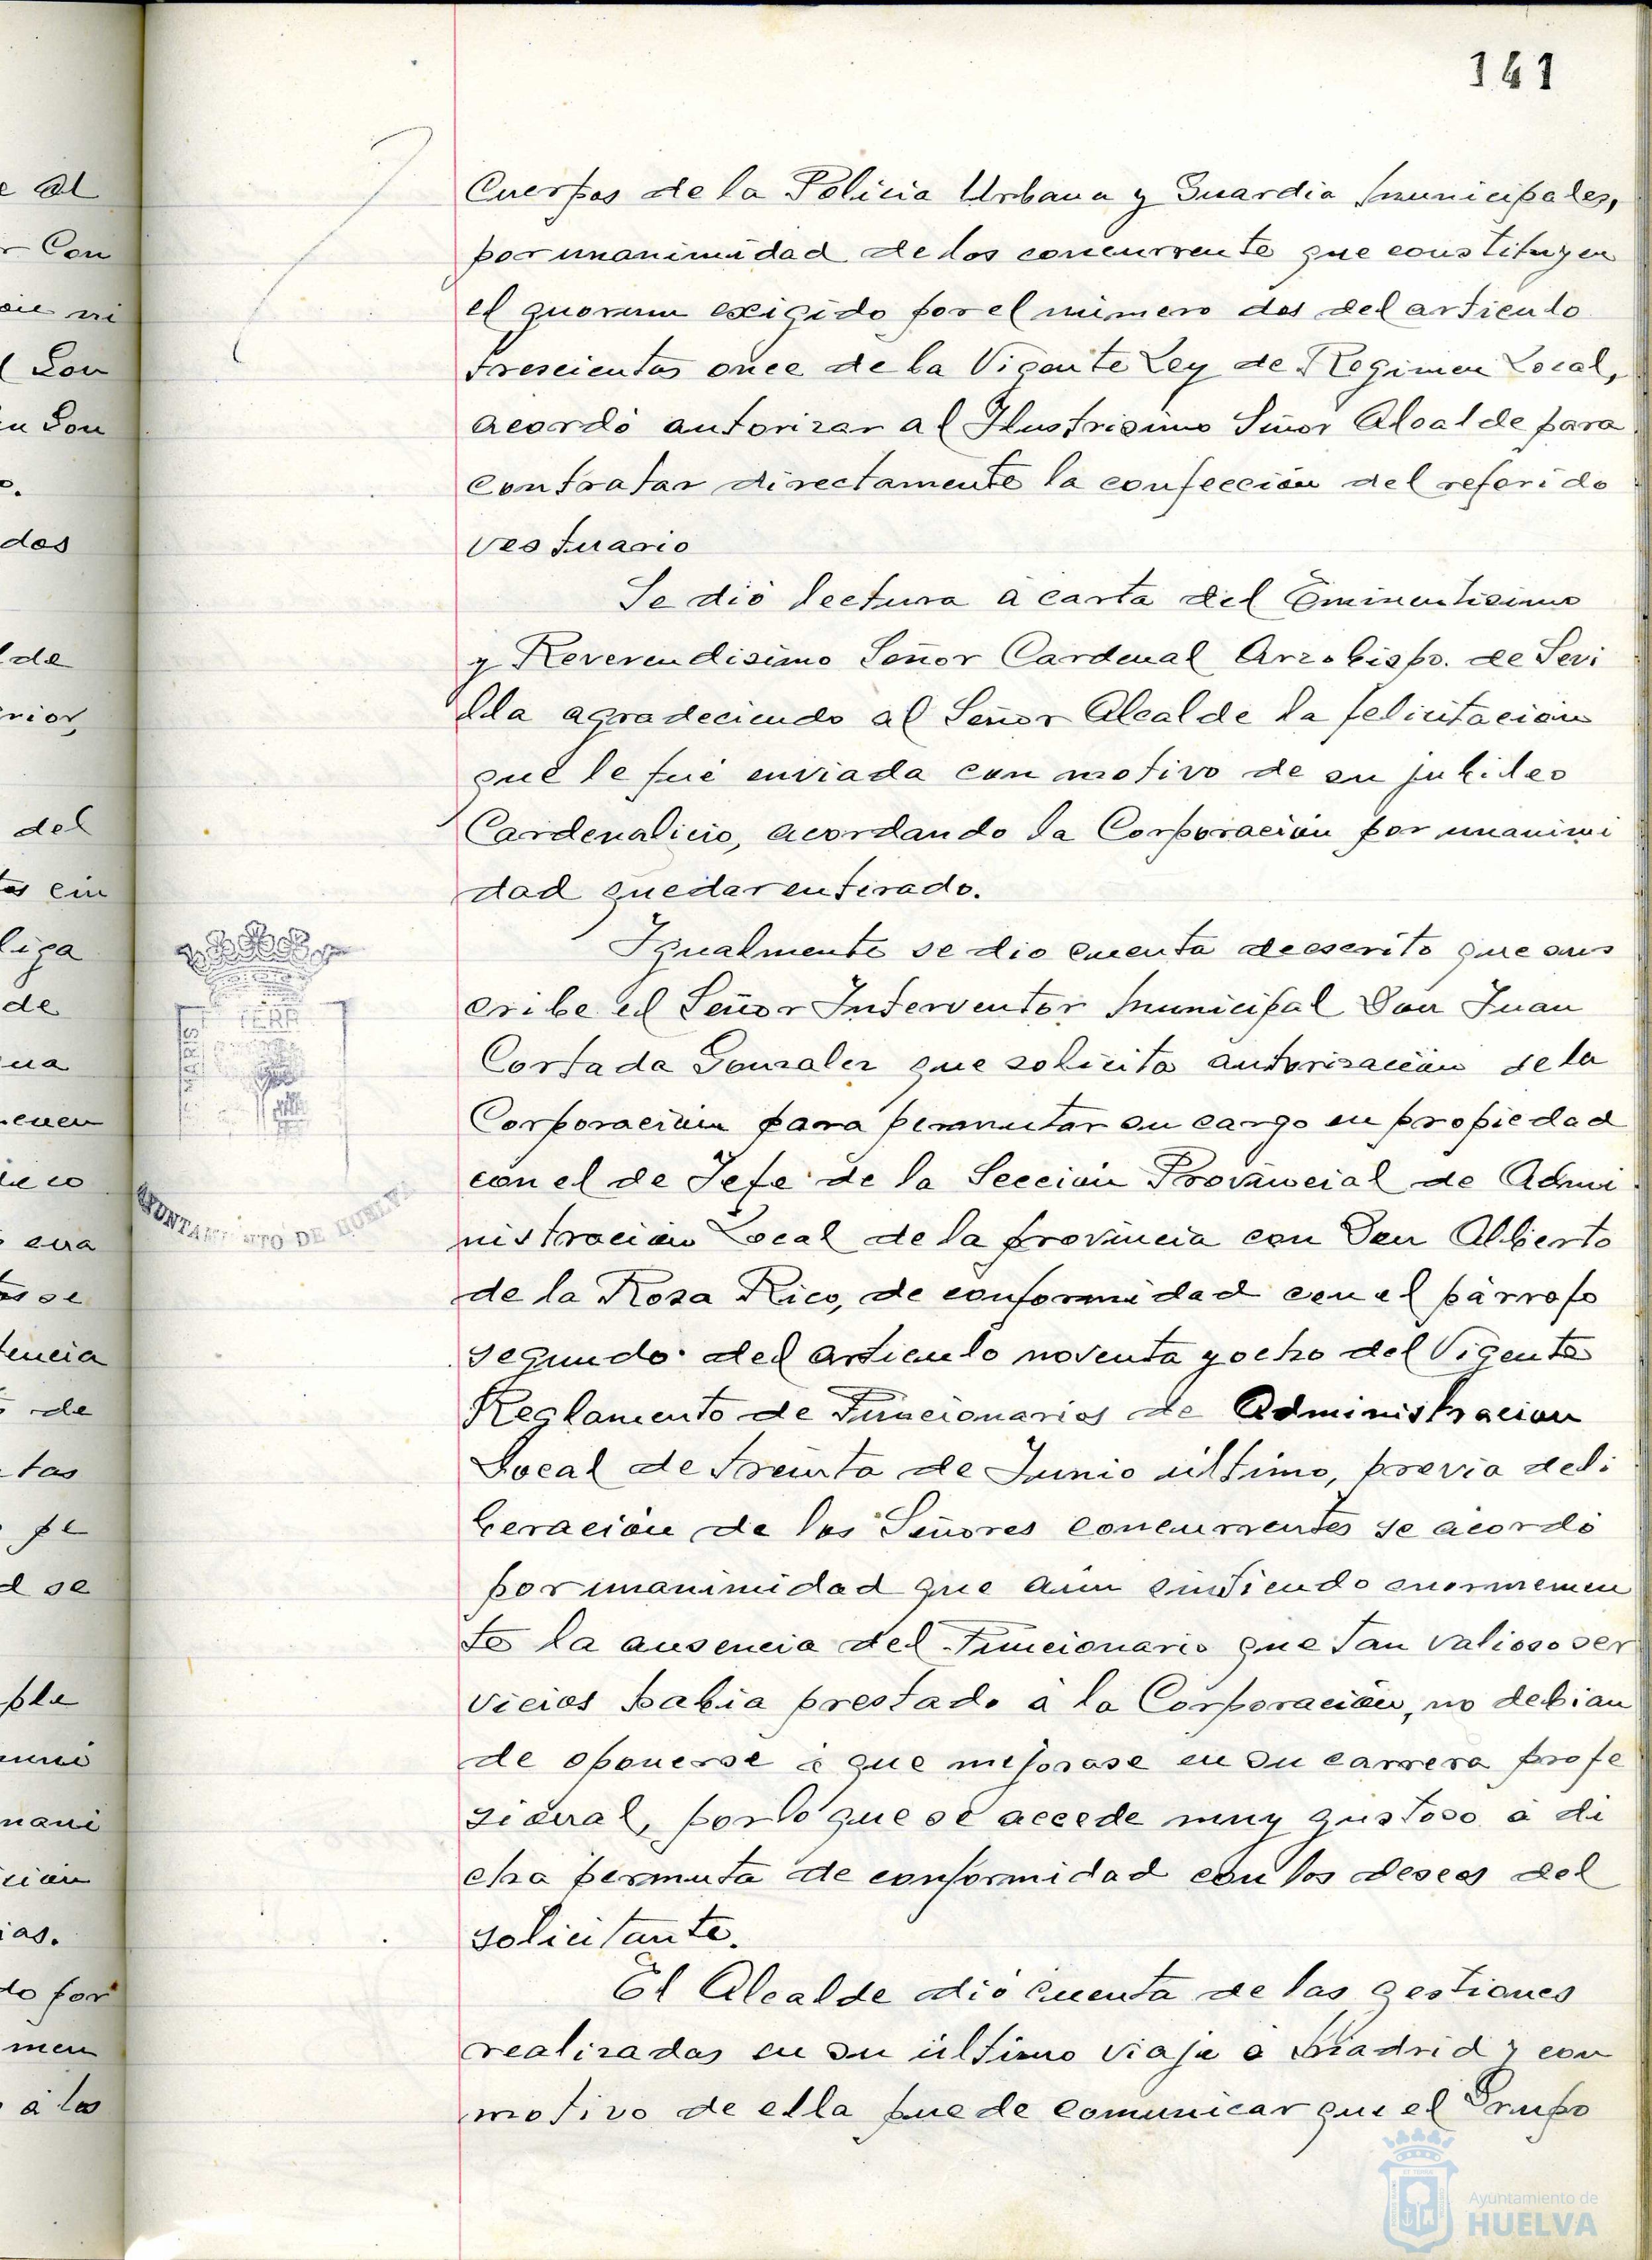 141
Cuerpos de la Policia Urbana y Guardia Municipales,
por unanimidad de los concurrente que constituyen
el quorum exigido por el número dos del articulo
trescientos once de la Vigente Ley de Regimen Local,
acordó autorizar al Ilustrisimo Señor Alcalde para
contratar directamente la confección del referido
vestuario
Se dió lectura á carta del Eminentisimo
y Reverendisimo Señor Cardenal Arzobispo. de Sevi
lla agradeciendo al Señor Alcalde la felicitación
que le fué enviada con motivo de su jubileo
Cardenalicio, acordando la Corporación por unanimi
dad quedar enterado.
Igualmente se dio cuenta de escrito que sus
cribe el Señor Interventor Municipal Don Juan
Cortada Gonzalez que solicita autorización de la
Corporación para permutar su cargo en propiedad
con el de Jefe de la Sección Provincial de Admi
nistración Local de la provincia con Don Alberto
de la Rosa Rico, de conformidad con el párrafo
segundo del articulo noventa y ocho del Vigente
Reglamento de Funcionarios de Administracion
Local de treinta de Junio último, previa deli
beración de los Señores concurrentes se acordó
por unanimidad que aún sintiendo enormemen
te la ausencia del Funcionario que tan valioso ser
vicios había prestado á la Corporación, no debian
de oponerse á que mejorase en su carrera profe
sional, por lo que se accede muy gustoso á di
cha permuta de conformidad con los deseos del
solicitante.
El Alcalde dió cuenta de las gestiones
realizadas en su último viaje á Madrid y con
motivo de ella puede comunicar que el Grupo
AYUNTAMIENTO DE HUELVA
Ayuntamiento de
HUELVA
e al
r Con
ni
Don
n Don
dos
de
rior,
del
tos cin
liga
de
na
cuen
se
tencia
de
tas
pe
d se
ple
mani
ción
ias.
do por
men
á los